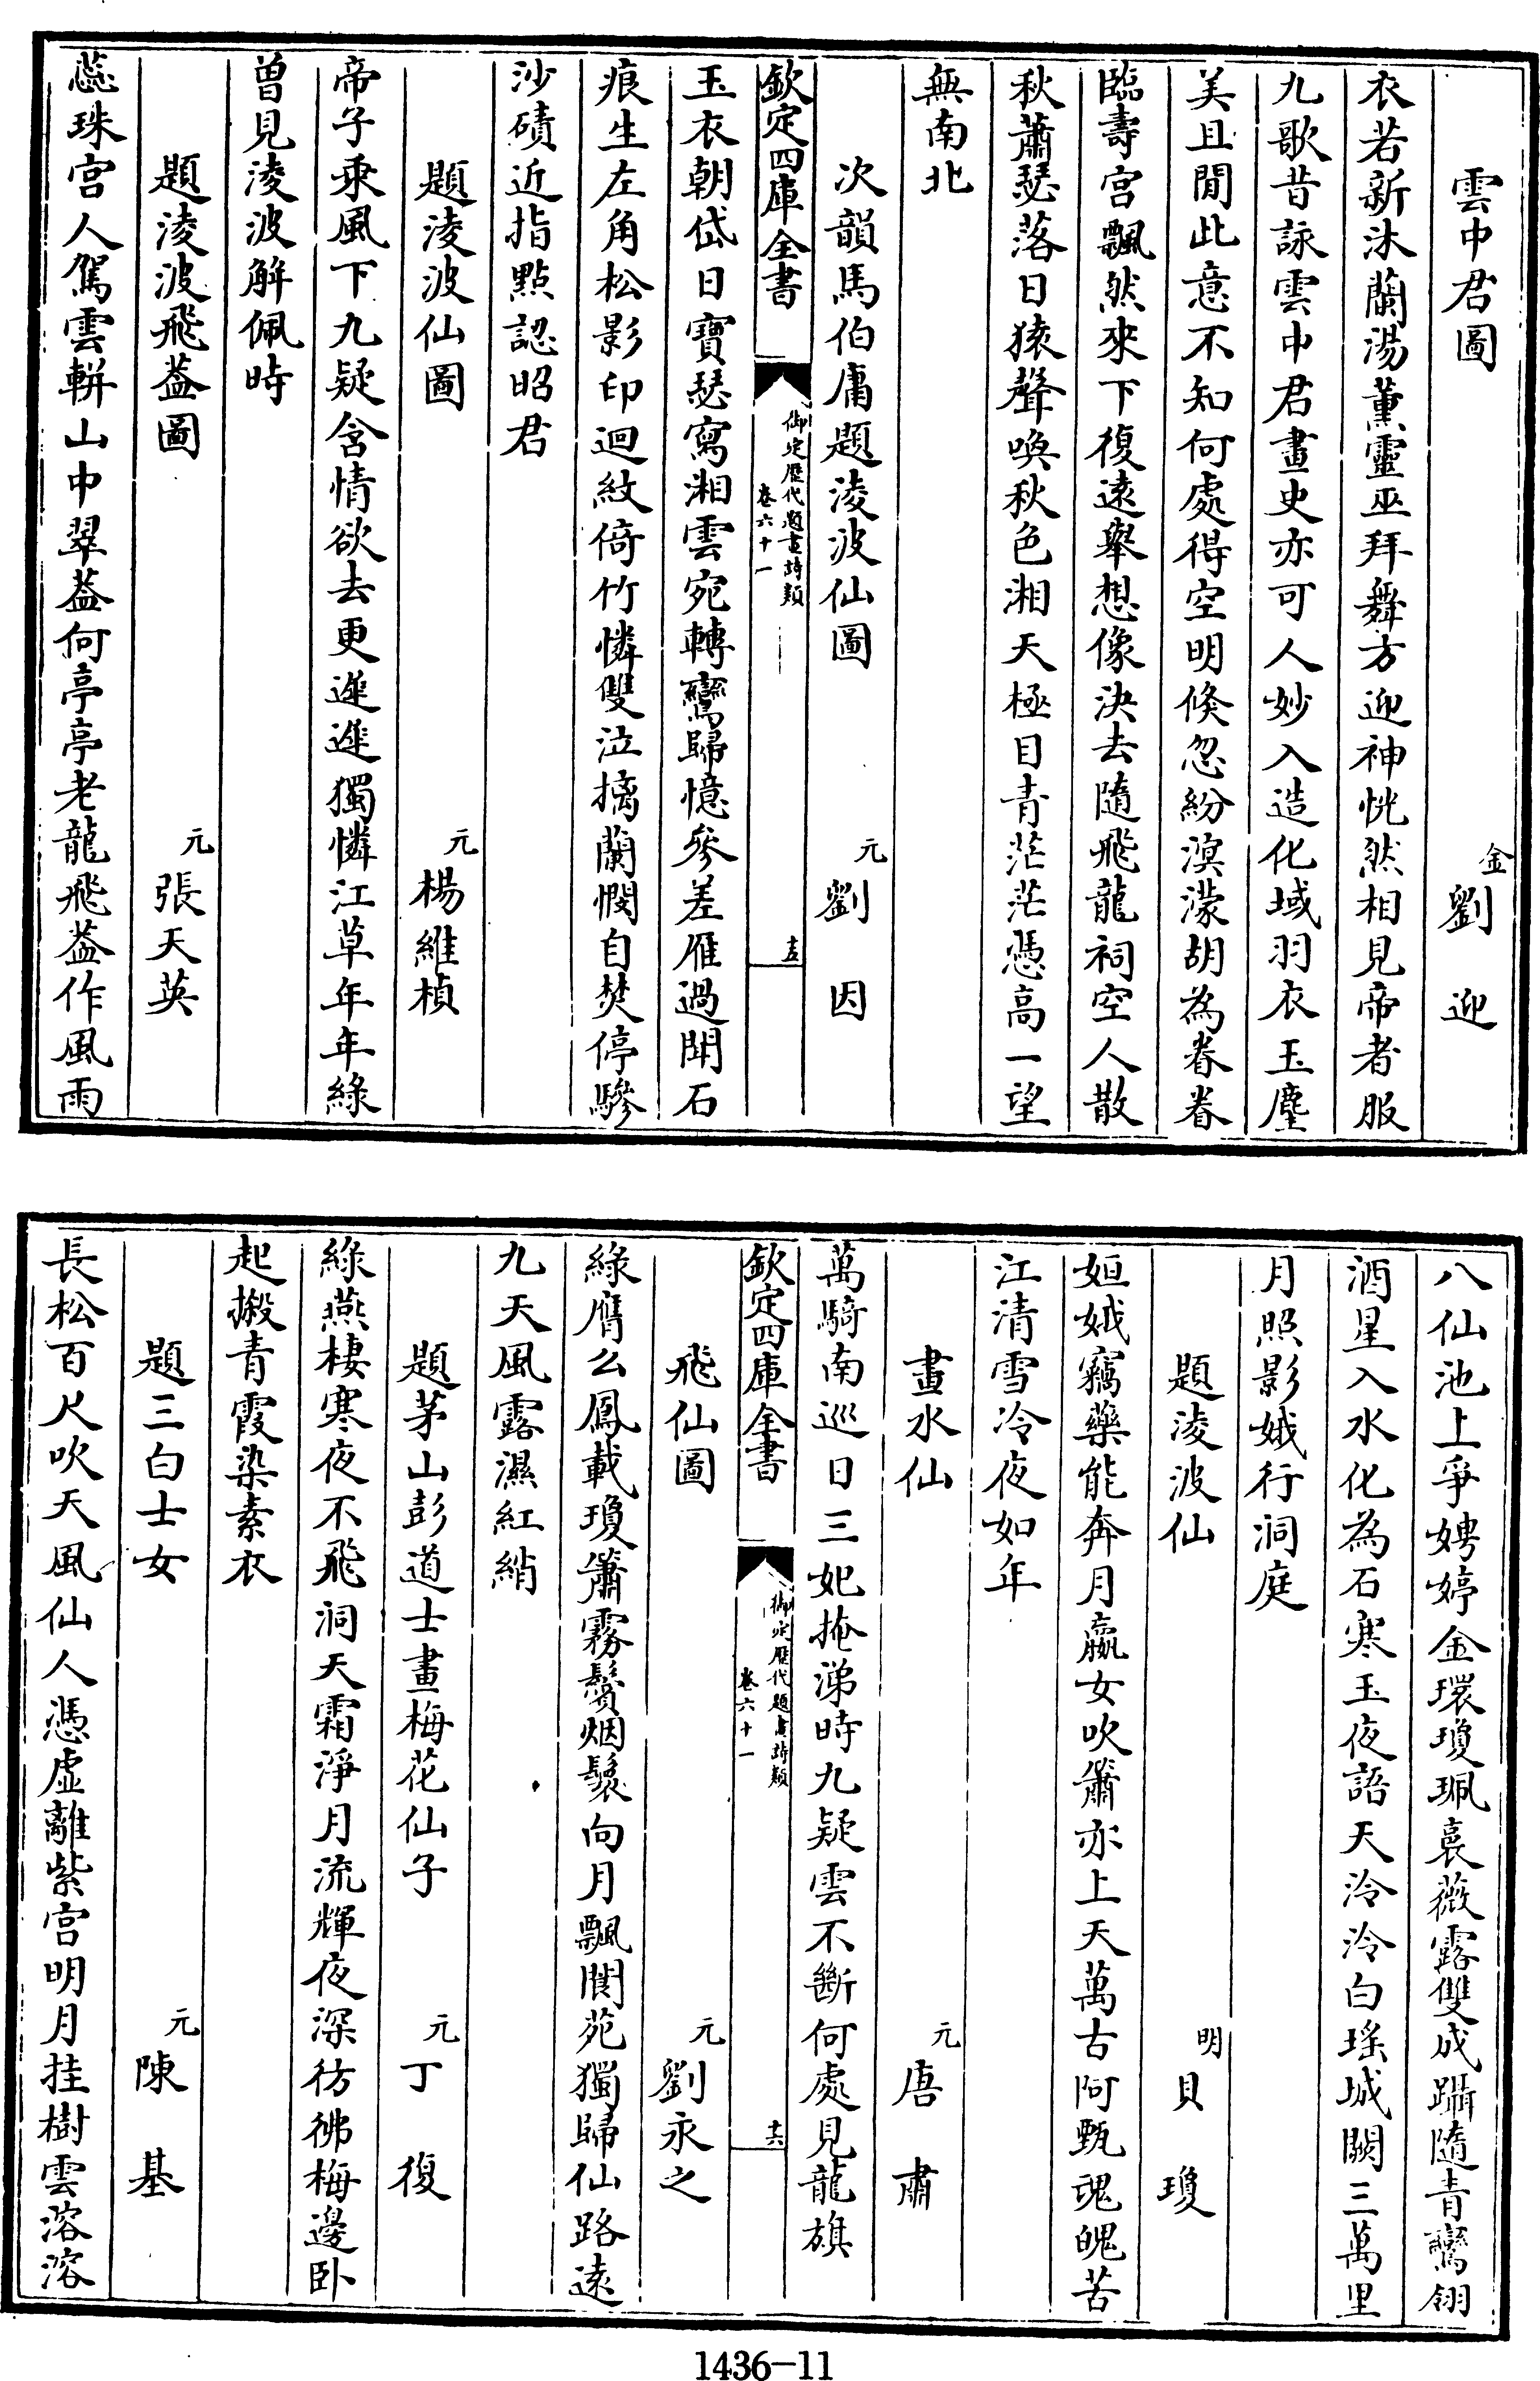 雲中君圖　金劉迎
衣若新沐蘭湯薰靈巫拜舞方迎神恍然相見帝者服
九歌昔詠雲中君畫史亦可人妙入造化域羽衣玉麈
美且閒此意不知何處得空明倏忽紛溟濛胡為眷眷
臨壽宮飄然來下復遠舉想像決去隨飛龍祠空人散
秋蕭瑟落日猿聲喚秋色湘天極目青茫茫憑高一望
無南北
次韻馬伯庸題淩波仙圖　元劉因
欽定四庫全書　御定歷代題畫詩類　卷六十一　十五
玉衣朝岱日寶瑟寫湘雲宛轉鸞歸憶參差雁過聞石
痕生左角松影印迴紋倚竹憐雙泣摛蘭憫自焚停驂
沙磧近指點認昭君
題淩波仙圖　元楊維楨
帝子乘風下九疑含情欲去更遲遲獨憐江草年年綠
曾見淩波解佩時
題淩波飛葢圖　元張天英
蕊珠宮人駕雲軿山中翠葢何亭亭老龍飛葢作風雨
八仙池上爭娉婷金環瓊珮裛薇露雙成躡隨青鸞翎
酒星入水化為石寒玉夜語天泠泠白瑤城闕三萬里
月照影娥行洞庭
題淩波仙　明貝瓊
姮娥竊藥能奔月嬴女吹簫亦上天萬古阿甄魂魄苦
江清雪冷夜如年
畫水仙　元唐肅
萬騎南巡日三妃掩涕時九疑雲不斷何處見龍旗
欽定四庫全書　御定歷代題畫詩類　卷六十一　十六
飛仙圖　元劉永之
綠膺么鳳載瓊簫霧鬢烟鬟向月飄閬苑獨歸仙路遠
九天風露濕紅綃
題茅山彭道士畫梅花仙子　元丁復
綠燕棲寒夜不飛洞天霜淨月流輝夜深彷彿梅邊卧
起搬青霞染素衣
題三白士女　元陳基
長松百尺吹天風仙人憑虛離紫宮明月挂樹雲溶溶
1436-11